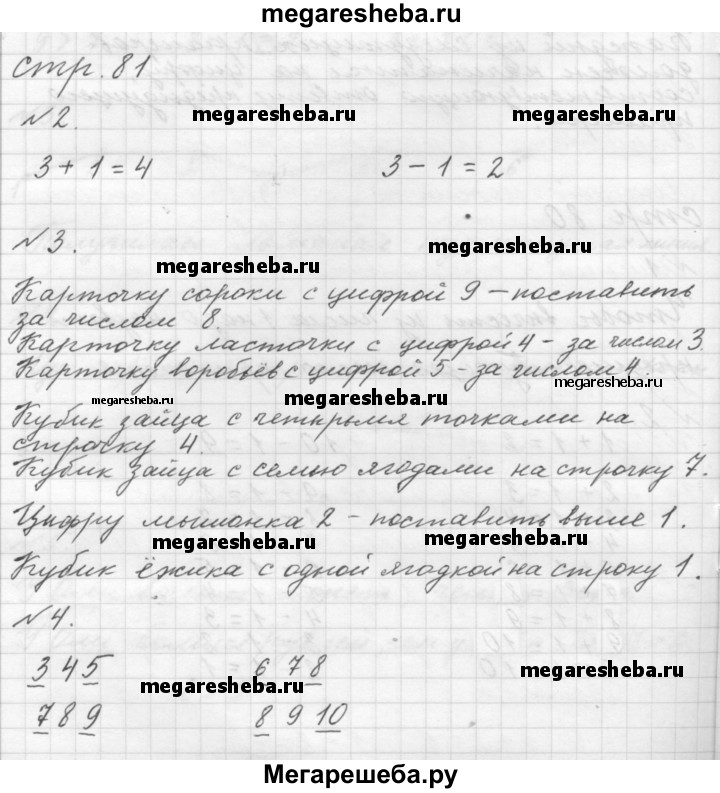 megaresheba.ru
стр. 81
№2. megaresheba.ru megaresheba.ru
3+1=4 3-1=2
№3. megaresheba.ru
megaresheba.ru
Карточку сороки с цифрой 9 – поставить
за числом 8.
Карточку ласточки с цифрой 4 – за числом 3.
Карточку воробьёв с цифрой 5 – за числом 4.
megaresheba.ru
megaresheba.ru
Кубик зайца с четырьмя точками на
строчку 4.
Кубик зайца с семью ягодами на строчку 7.
Цифру мышонка 2 – поставить выше 1.
megaresheba.ru megaresheba.ru
Кубик ёжика с одной ягодкой на строку 1.
№4.
3 4 5 6 7 8
megaresheba.ru megaresheba.ru
7 8 9 8 9 10
Мегарешеба.ру